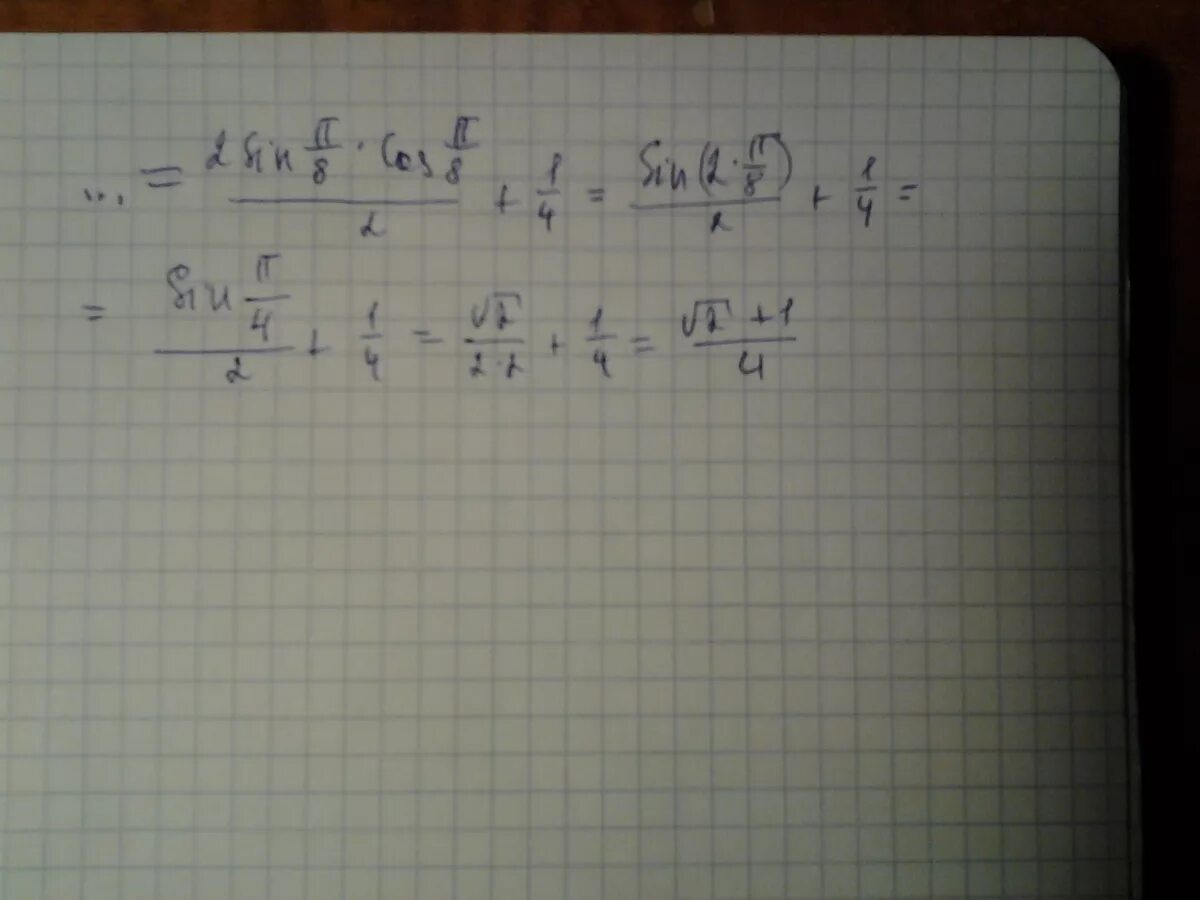 ... = \frac{2 sin \frac{π}{8} · cos \frac{π}{8}}{2} + \frac{1}{4} = \frac{sin(2 · \frac{π}{8})}{2} + \frac{1}{4} =
= \frac{sin \frac{π}{4}}{2} + \frac{1}{4} = \frac{√2}{2·2} + \frac{1}{4} = \frac{√2 + 1}{4}